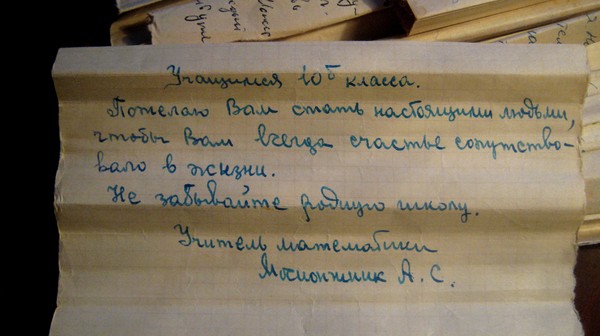 Учащимся 10б класса.
Пожелаю Вам стать настоящими людьми,
чтобы Вам всегда счастье сопутство-
вало в жизни.
Не забывайте родную школу.
Учитель математики
А. С.